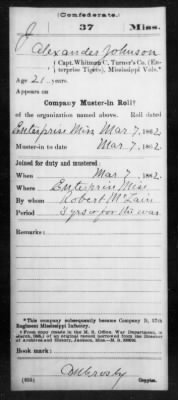 (Confederate.)
37 Miss.
J Alexander Johnson
Capt. Whitman C. Turner's Co. (En-
terprise Tigers), Mississippi Vols.*
Age 21 years.
Appears on
Company Muster-in Roll†
of the organization named above. Roll dated
Enterprise Miss Mar 7, 1862.
Muster-in to date Mar 7, 1862.
Joined for duty and mustered:
When Mar 7, 1862.
Where Enterprise, Miss.
By whom Robert McLain
Period 3 yrs or for the war
Remarks:
*This company subsequently became Co. , 37th
Regiment Mississippi Infantry.
† From copy (made in the M. S. Office, War Department, in
March, 1903,) of an original record borrowed from the Director
of Archives and History, Jackson, Miss.—M. S.
Book mark:
Crosby
Copyist.